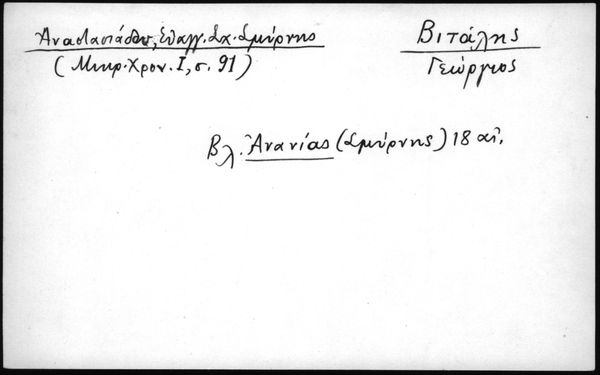 Ἀναστασιάδου, Εὐαγγ. Σχ. Σμύρνης
(Μικρ. Χρον. Ι, σ. 91)
Βιτάλης
Γεώργιος
Βλ. Ἀνανίας (Σμύρνης) 18 αἰ.